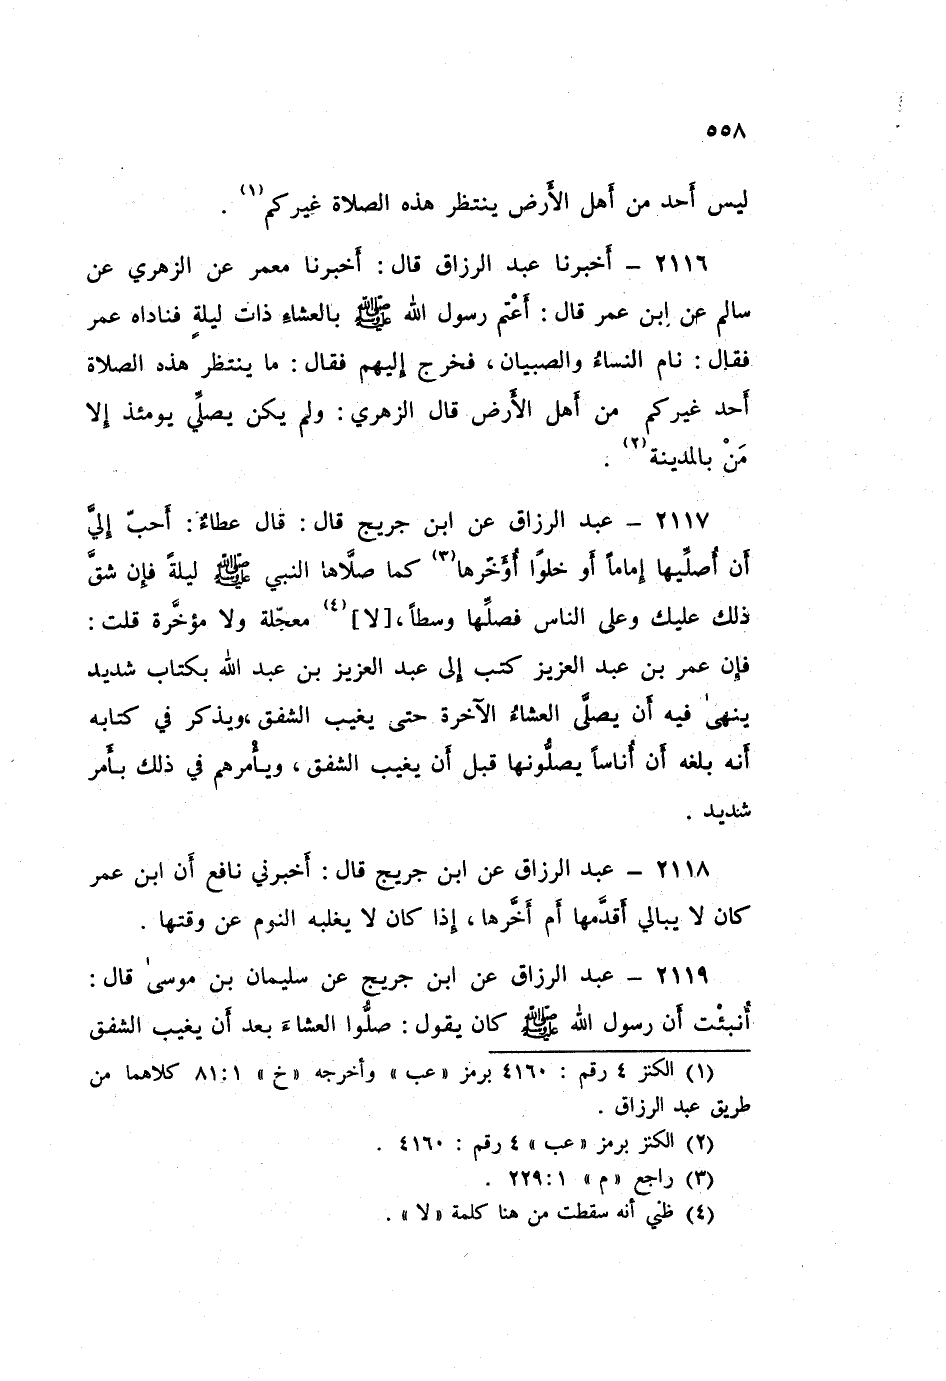 ٥٥٨
ليس أَحد من أَهل الأَرض ينتظر هذه الصلاة غيركم(١) .
٢١١٦ – أَخبرنا عبد الرزاق قال : أَخبرنا معمر عن الزهري عن
سالم عن إبن عمر قال : أَعْتم رسول الله ﷺ بالعشاءِ ذات ليلةٍ فناداه عمر
فقال : نام النساءُ والصبيان ، فخرج إليهم فقال : ما ينتظر هذه الصلاة
أَحد غيركم من أَهل الأَرض قال الزهري : ولم يكن يصلِّي يومئذ إلا
مَنْ بالمدينة(٢) .
٢١١٧ – عبد الرزاق عن ابن جريج قال : قال عطاءٌ : أَحبّ إليَّ
أَن أُصلِّيها إماماً أَو خلوًا أُؤَخّرها(٣) كما صلَّاها النبي ﷺ ليلةً فإن شقَّ
ذلك عليك وعلى الناس فصلِّها وسطاً ،[لا](٤) معجّلة ولا مؤخَّرة قلت :
فإن عمر بن عبد العزيز كتب إلى عبد العزيز بن عبد الله بكتاب شديد
ينهىٰ فيه أَن يصلَّى العشاءُ الآخرة حتى يغيب الشفق ،ويذكر في كتابه
أَنه بلغه أَن أُناساً يصلُّونها قبل أَن يغيب الشفق ، ويأْمرهم في ذلك بأَمر
شديد .
٢١١٨ – عبد الرزاق عن ابن جريج قال : أَخبرني نافع أَن ابن عمر
كان لا يبالي أَقدَّمها أَم أَخَّرها ، إذا كان لا يغلبه النوم عن وقتها .
٢١١٩ – عبد الرزاق عن ابن جريج عن سليمان بن موسىٰ قال :
أُنبئْت أَن رسول الله ﷺ كان يقول : صلُّوا العشاءَ بعد أَن يغيب الشفق
(١) الكنز ٤ رقم : ٤١٦٠ برمز «عب» وأخرجه «خ» ٨١:١ كلاهما من
طريق عبد الرزاق .
(٢) الكنز برمز «عب» ٤ رقم : ٤١٦٠ .
(٣) راجع «م» ٢٢٩:١ .
(٤) ظني أنه سقطت من هنا كلمة «لا» .